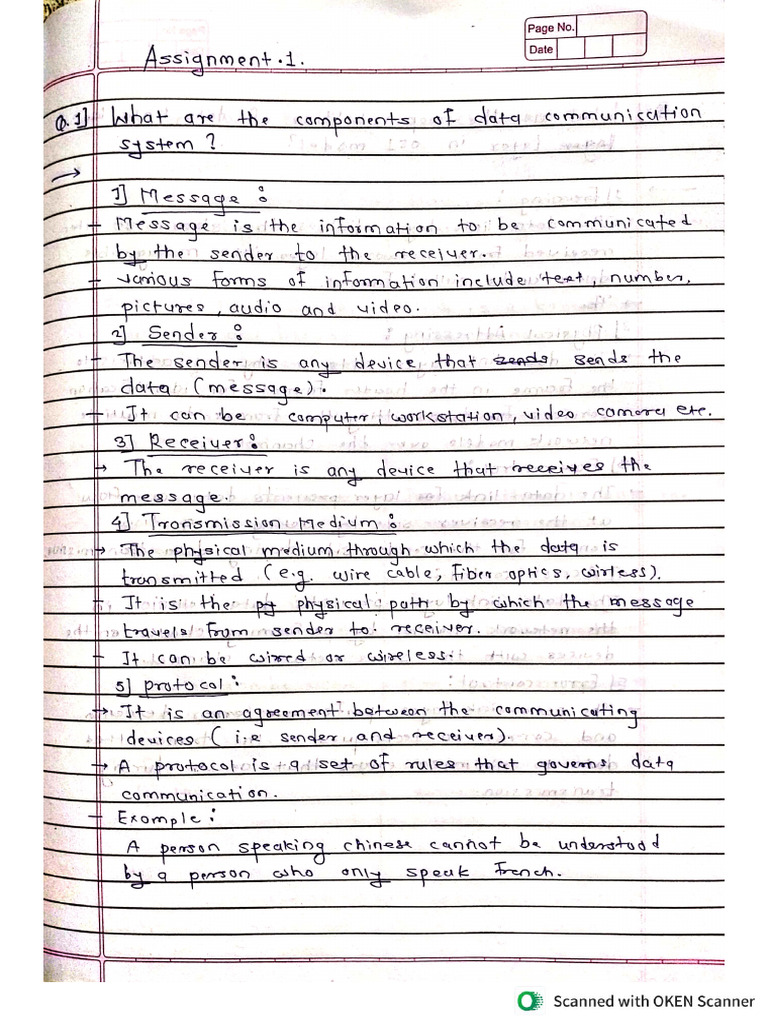 Page No.
Date
Assignment.1.
Q.1] What are the components of data communication
system ?
→
1] Message :
- Message is the information to be communicated
by the sender to the receiver.
- various forms of information include text, number,
pictures, audio and video.
2] Sender :
- The sender is any device that sends the
data (message).
- It can be computer, workstation, video camera etc.
3] Receiver :
→ The receiver is any device that receives the
message.
4] Transmission Medium :
→ The physical medium through which the data is
transmitted (e.g. wire cable, Fiber optics, wirless).
- It is the physical path by which the message
travels from sender to receiver.
- It can be wired or wireless.
5] protocol :
→ It is an agreement between the communicating
devices ( i.e sender and receiver).
→ A protocol is a set of rules that governs data
communication.
- Example :
A person speaking chinese cannot be understood
by a person who only speak French.
Scanned with OKEN Scanner